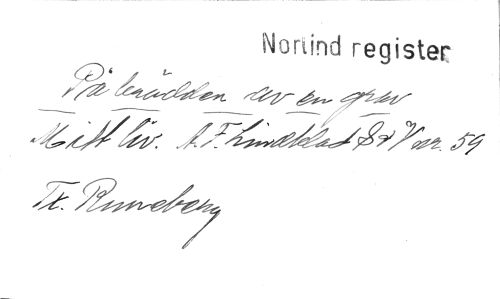 Norlind register
På bädden av en grav
Mitt liv. A. F. Lindblad S o V nr. 59
Tx. Runeberg